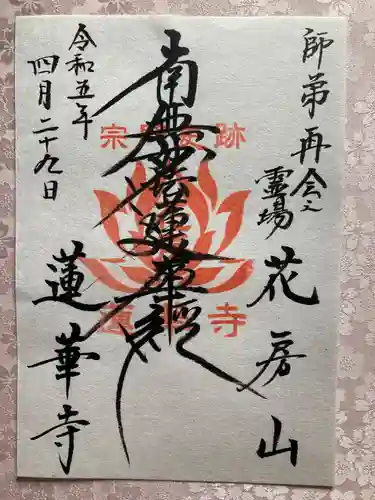 師弟再会之
霊場
花房山
南無妙法蓮華経
宗門史跡
蓮華寺
令和五年
四月二十九日
蓮華寺